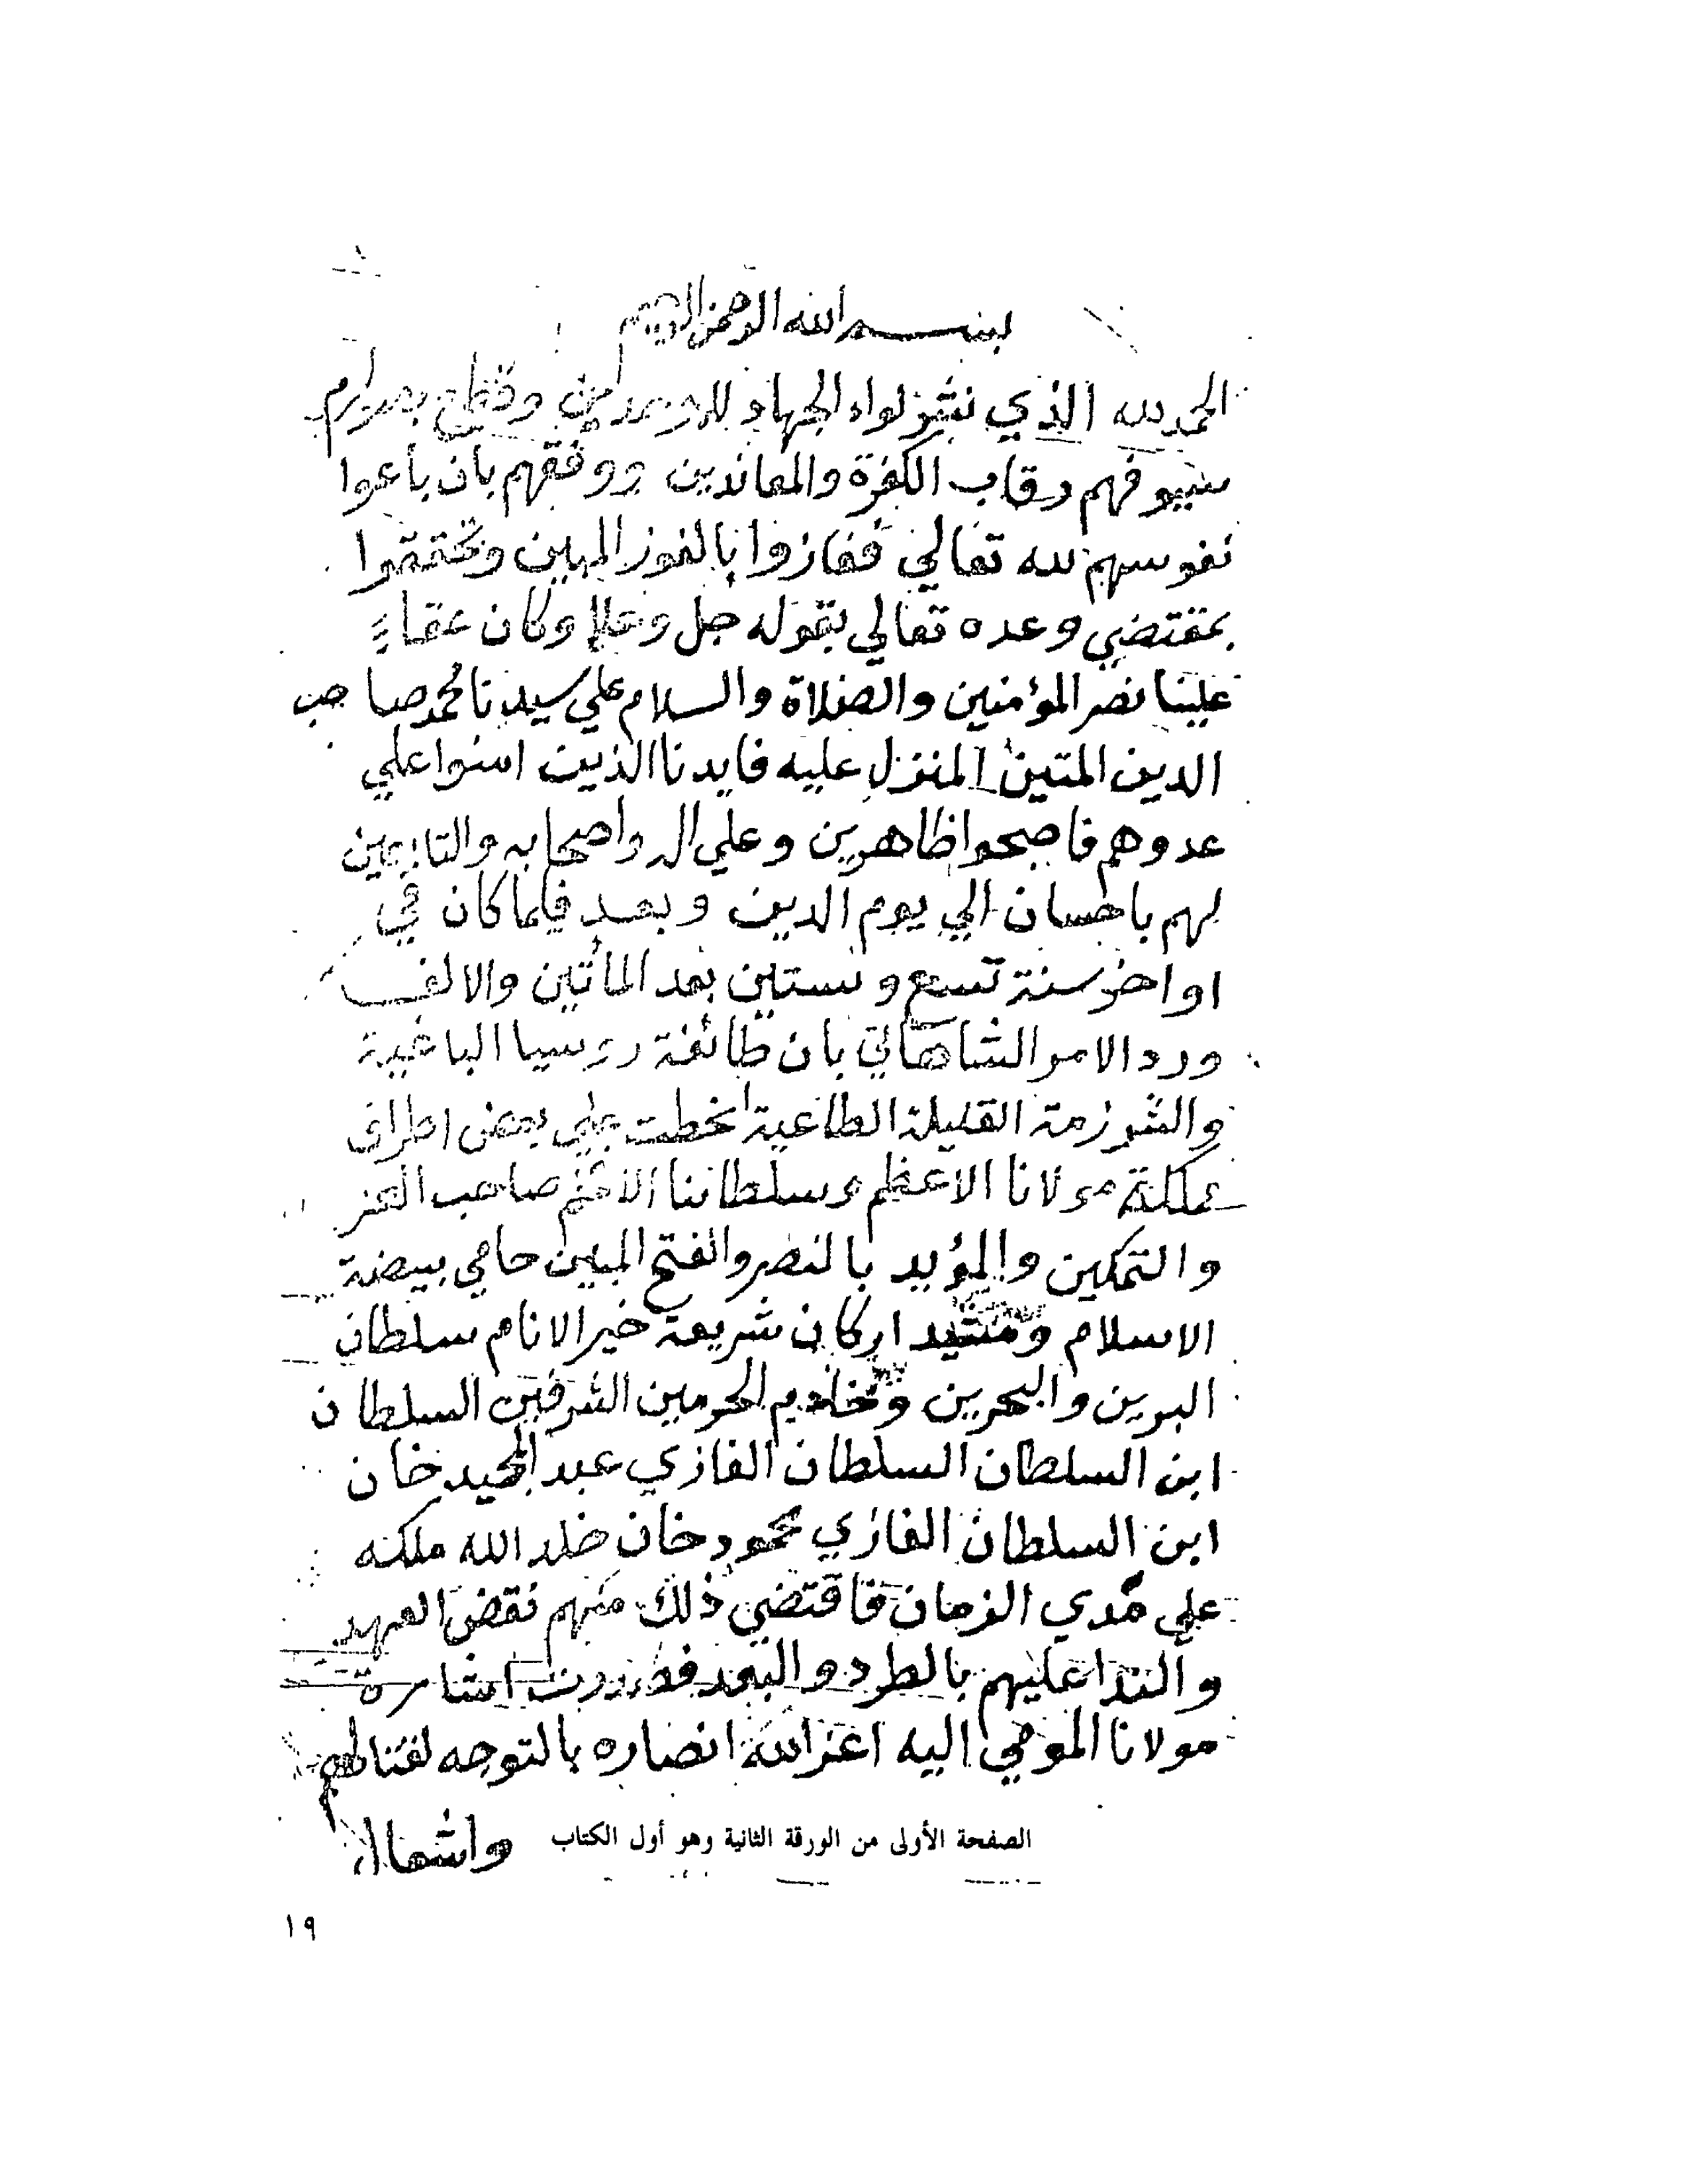 بسم الله الرحمن الرحيم
الحمد لله الذي نشر لواء الجهاد للموحدين وقطع بصوارم
سيوفهم رقاب الكفرة والمعاندين ووفقهم بان باعوا
نفوسهم لله تعالي ففازوا بالفوز المبين وتحققوا
بمقتضي وعده تعالي بقوله جل وعلا وكان حقاً
علينا نصر المؤمنين والصلاة والسلام علي سيدنا محمد صاحب
الدين المتين المنزل عليه فايدنا الذين امنوا علي
عدوهم فاصبحوا ظاهرين وعلي اله واصحابه والتابعين
لهم باحسان الي يوم الدين وبعد فلما كان في
اواخر سنة تسع وستين بعد المأتين والالف
ورد الامر الشاهاني بان طائفة روسيا الباغية
والشرزمة القليلة الطاغية تخطت علي بعض اطراف
مملكة مولانا الاعظم وسلطاننا الافخم صاحب العز
والتمكين والمؤيد بالنصر والفتح المبين حامي بيضة
الاسلام ومشيد اركان شريعة خير الانام سلطان
البرين والبحرين وخادم الحرمين الشرفين السلطان
ابن السلطان السلطان الغازي عبد المجيد خان
ابن السلطان الغازي محمود خان خلد الله ملكه
علي مدي الزمان فاقتضي ذلك منهم نقض العهد
والندا عليهم بالطرد والبعد فصدرت اشارة
مولانا المومي اليه اعز الله انصاره بالتوجه لقتالهم
واشعال
الصفحة الأولى من الورقة الثانية وهو أول الكتاب
١٩